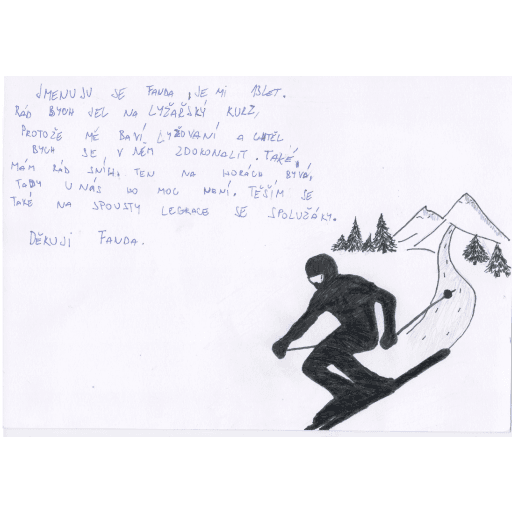 JMENUJU SE FANDA, JE MI 13 LET.
RÁD BYCH JEL NA LYŽAŘSKÝ KURZ,
PROTOŽE MÉ BAVÍ LYŽOVANÍ A CHTĚL
BYCH SE V NĚM ZDOKONALIT. TAKÉ,
MÁM RÁD SNÍH. TEN NA HORÁCH BÝVÁ,
TADY U NÁS HO MOC NENÍ. TĚŠÍM SE
TAKÉ NA SPOUSTY LEGRACE SE SPOLUŽÁKY.
DĚKUJI FANDA.